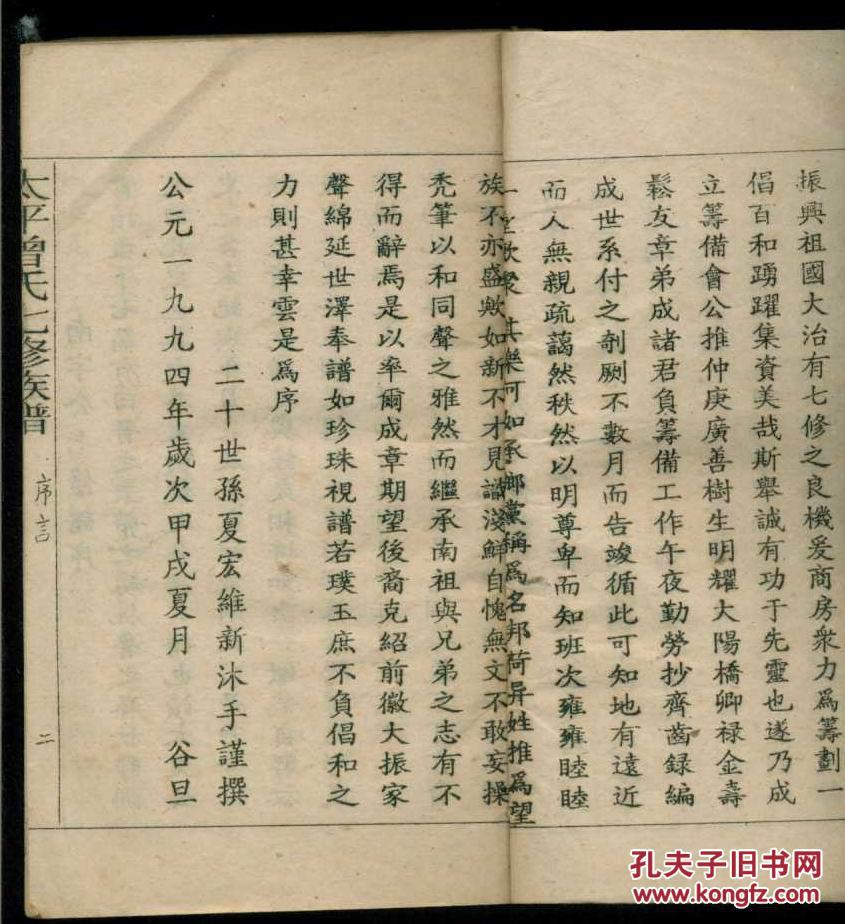 振興祖國大治有七修之良機爰商房衆力爲籌劃一
倡百和踴躍集資美哉斯舉誠有功于先靈也遂乃成
立籌備會公推仲庚廣善樹生明耀大陽橋卿禄金壽
鬆友章弟成諸君負籌備工作午夜勤勞抄齊齒録編
成世系付之剞劂不數月而告竣循此可知地有遠近
而人無親疏藹然秩然以明尊卑而知班次雍雍睦睦
一堂歡聚其樂何如承鄉黨稱爲名邦荷异姓推爲望
族不亦盛歟如新不才見識淺鮮自愧無文不敢妄操
禿筆以和同聲之雅然而繼承南祖與兄弟之志有不
得而辭焉是以率爾成章期望後裔克紹前徽大振家
聲綿延世澤奉譜如珍珠視譜若璞玉庶不負倡和之
力則甚幸雲是爲序
二十世孫夏宏維新沐手謹撰
公元一九九四年歲次甲戌夏月 谷旦
太平曾氏七修族譜 序言 二
孔夫子旧书网
www.kongfz.com